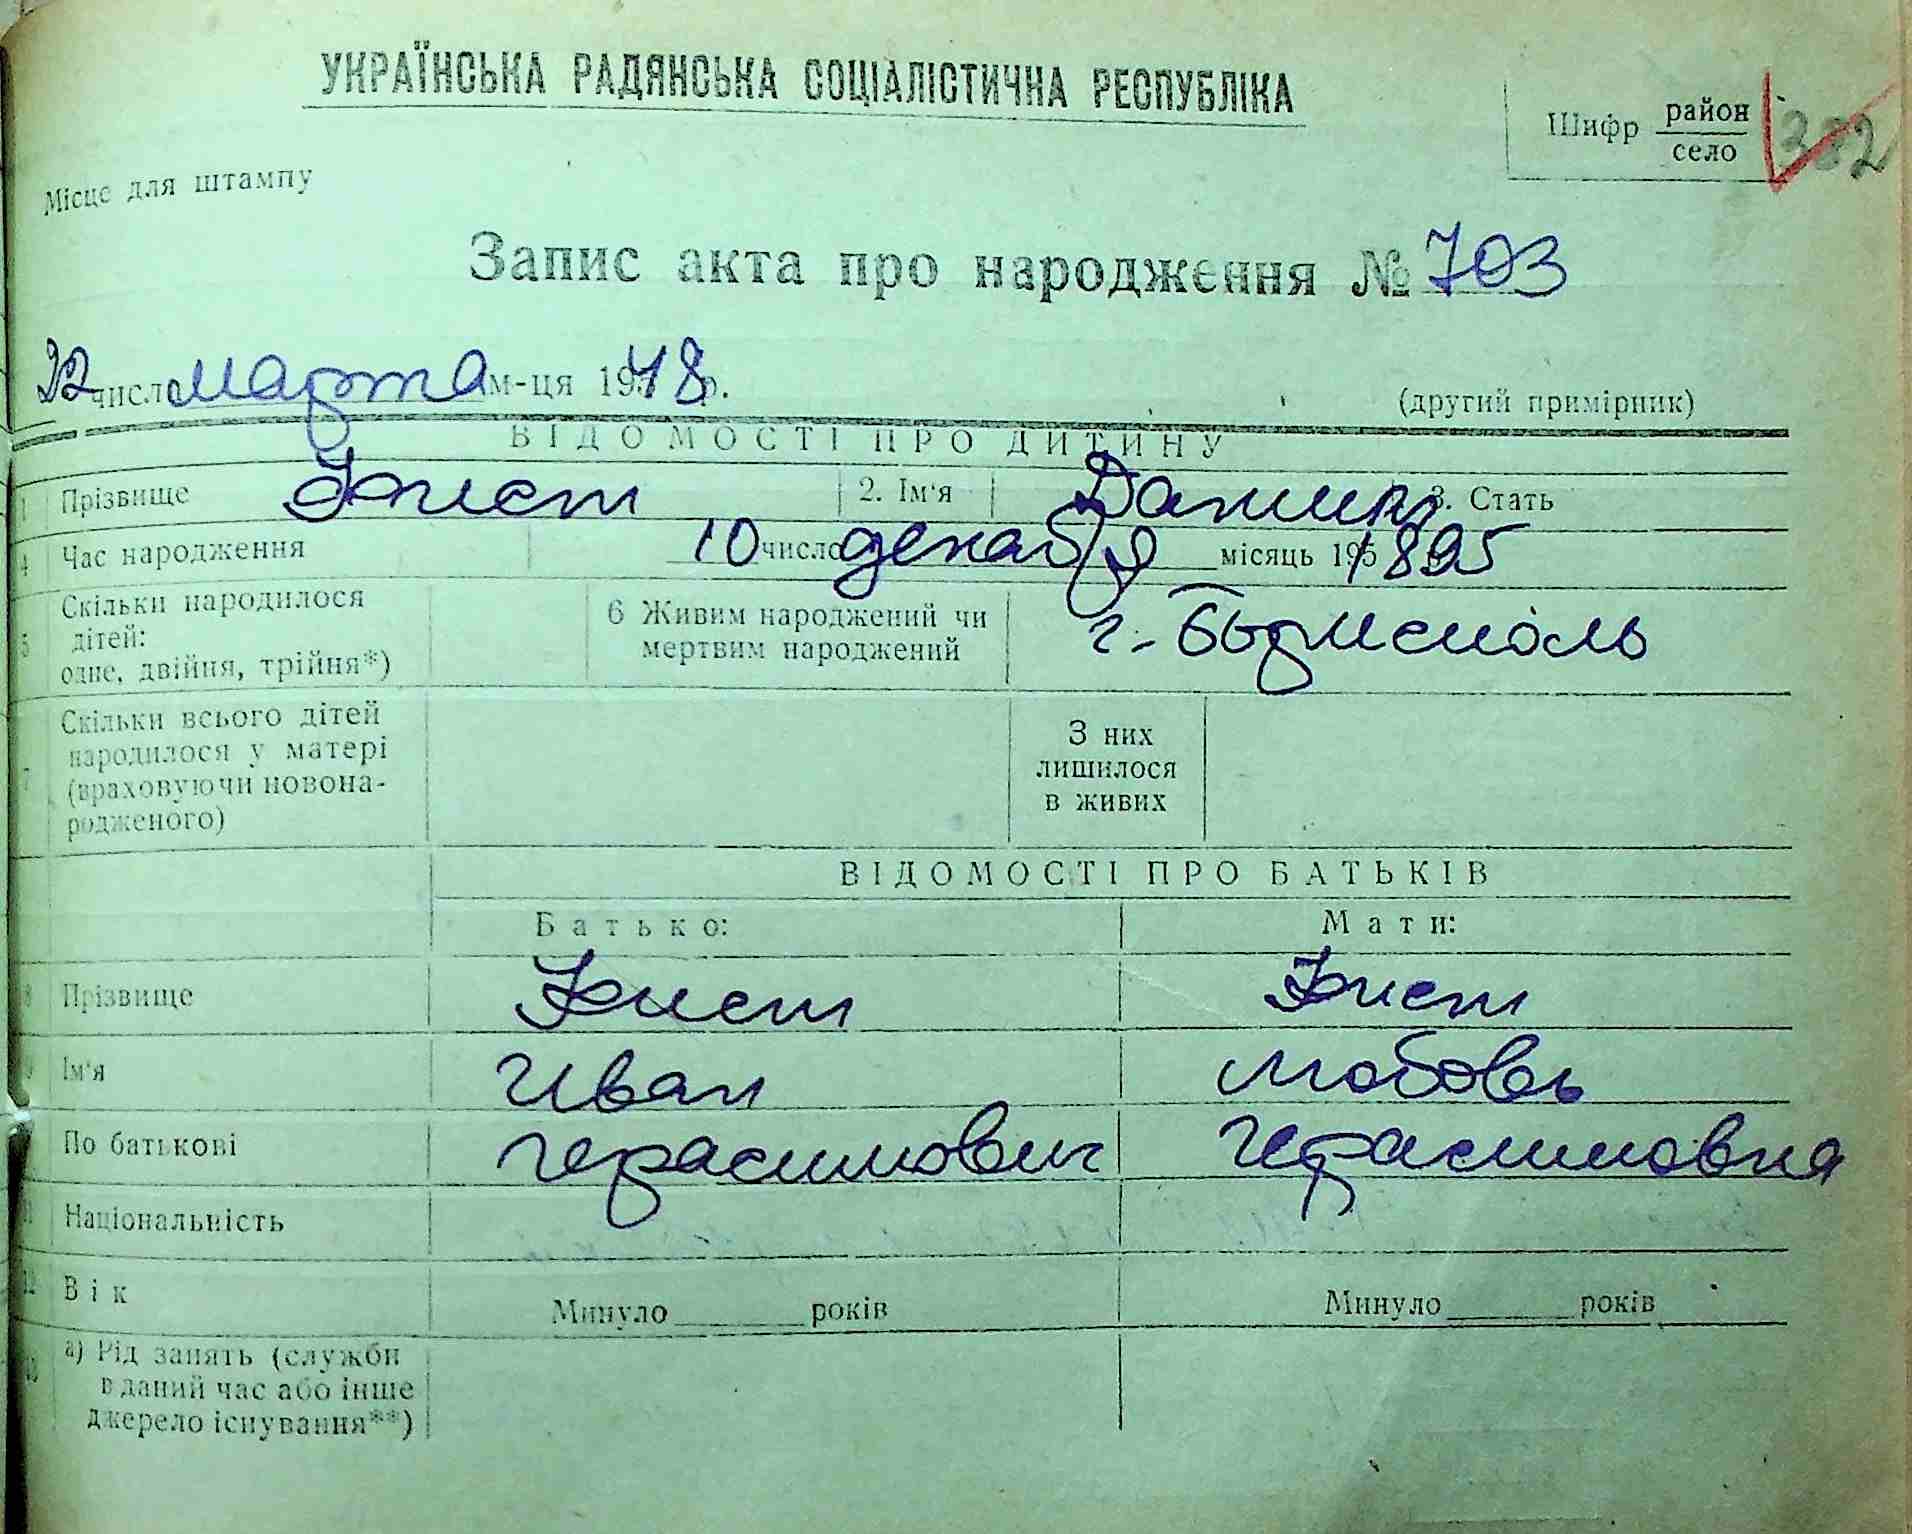 УКРАЇНСЬКА РАДЯНСЬКА СОЦІАЛІСТИЧНА РЕСПУБЛІКА
Шифр район 332
село
Місце для штампу
Запис акта про народження № 703
22 число марта м-ця 1948 р.
(другий примірник)
ВІДОМОСТІ ПРО ДИТИНУ
1 Прізвище Фист 2. Ім'я Даниил 3. Стать
4 Час народження 10 число декабря місяць 195 1895
5 Скільки народилося дітей: одне, двійня, трійня*) 6 Живим народжений чи мертвим народжений г. Борисполь
7 Скільки всього дітей народилося у матері (враховуючи новонародженого) З них лишилося в живих
ВІДОМОСТІ ПРО БАТЬКІВ
Батько: Мати:
8 Прізвище Фист Фист
9 Ім'я Иван Любовь
По батькові Герасимович Герасимовна
11 Національність
12 Вік Минуло років Минуло років
13 а) Рід занять (служби в даний час або інше джерело існування**)